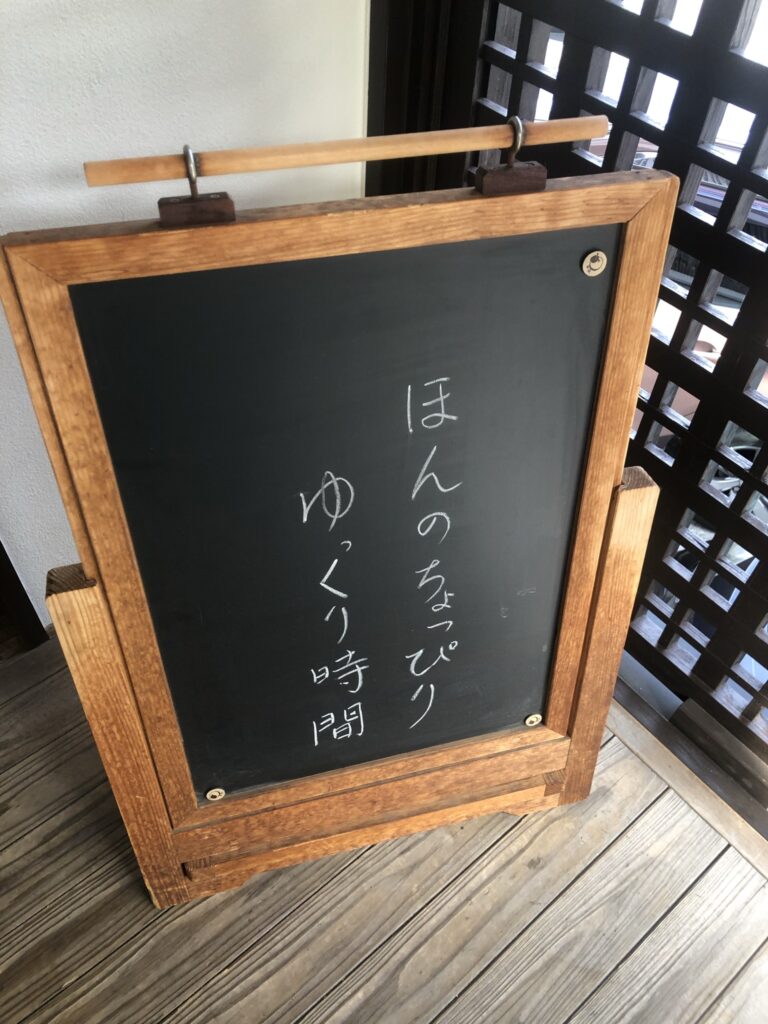 ほんのちょっぴり
ゆっくり時間